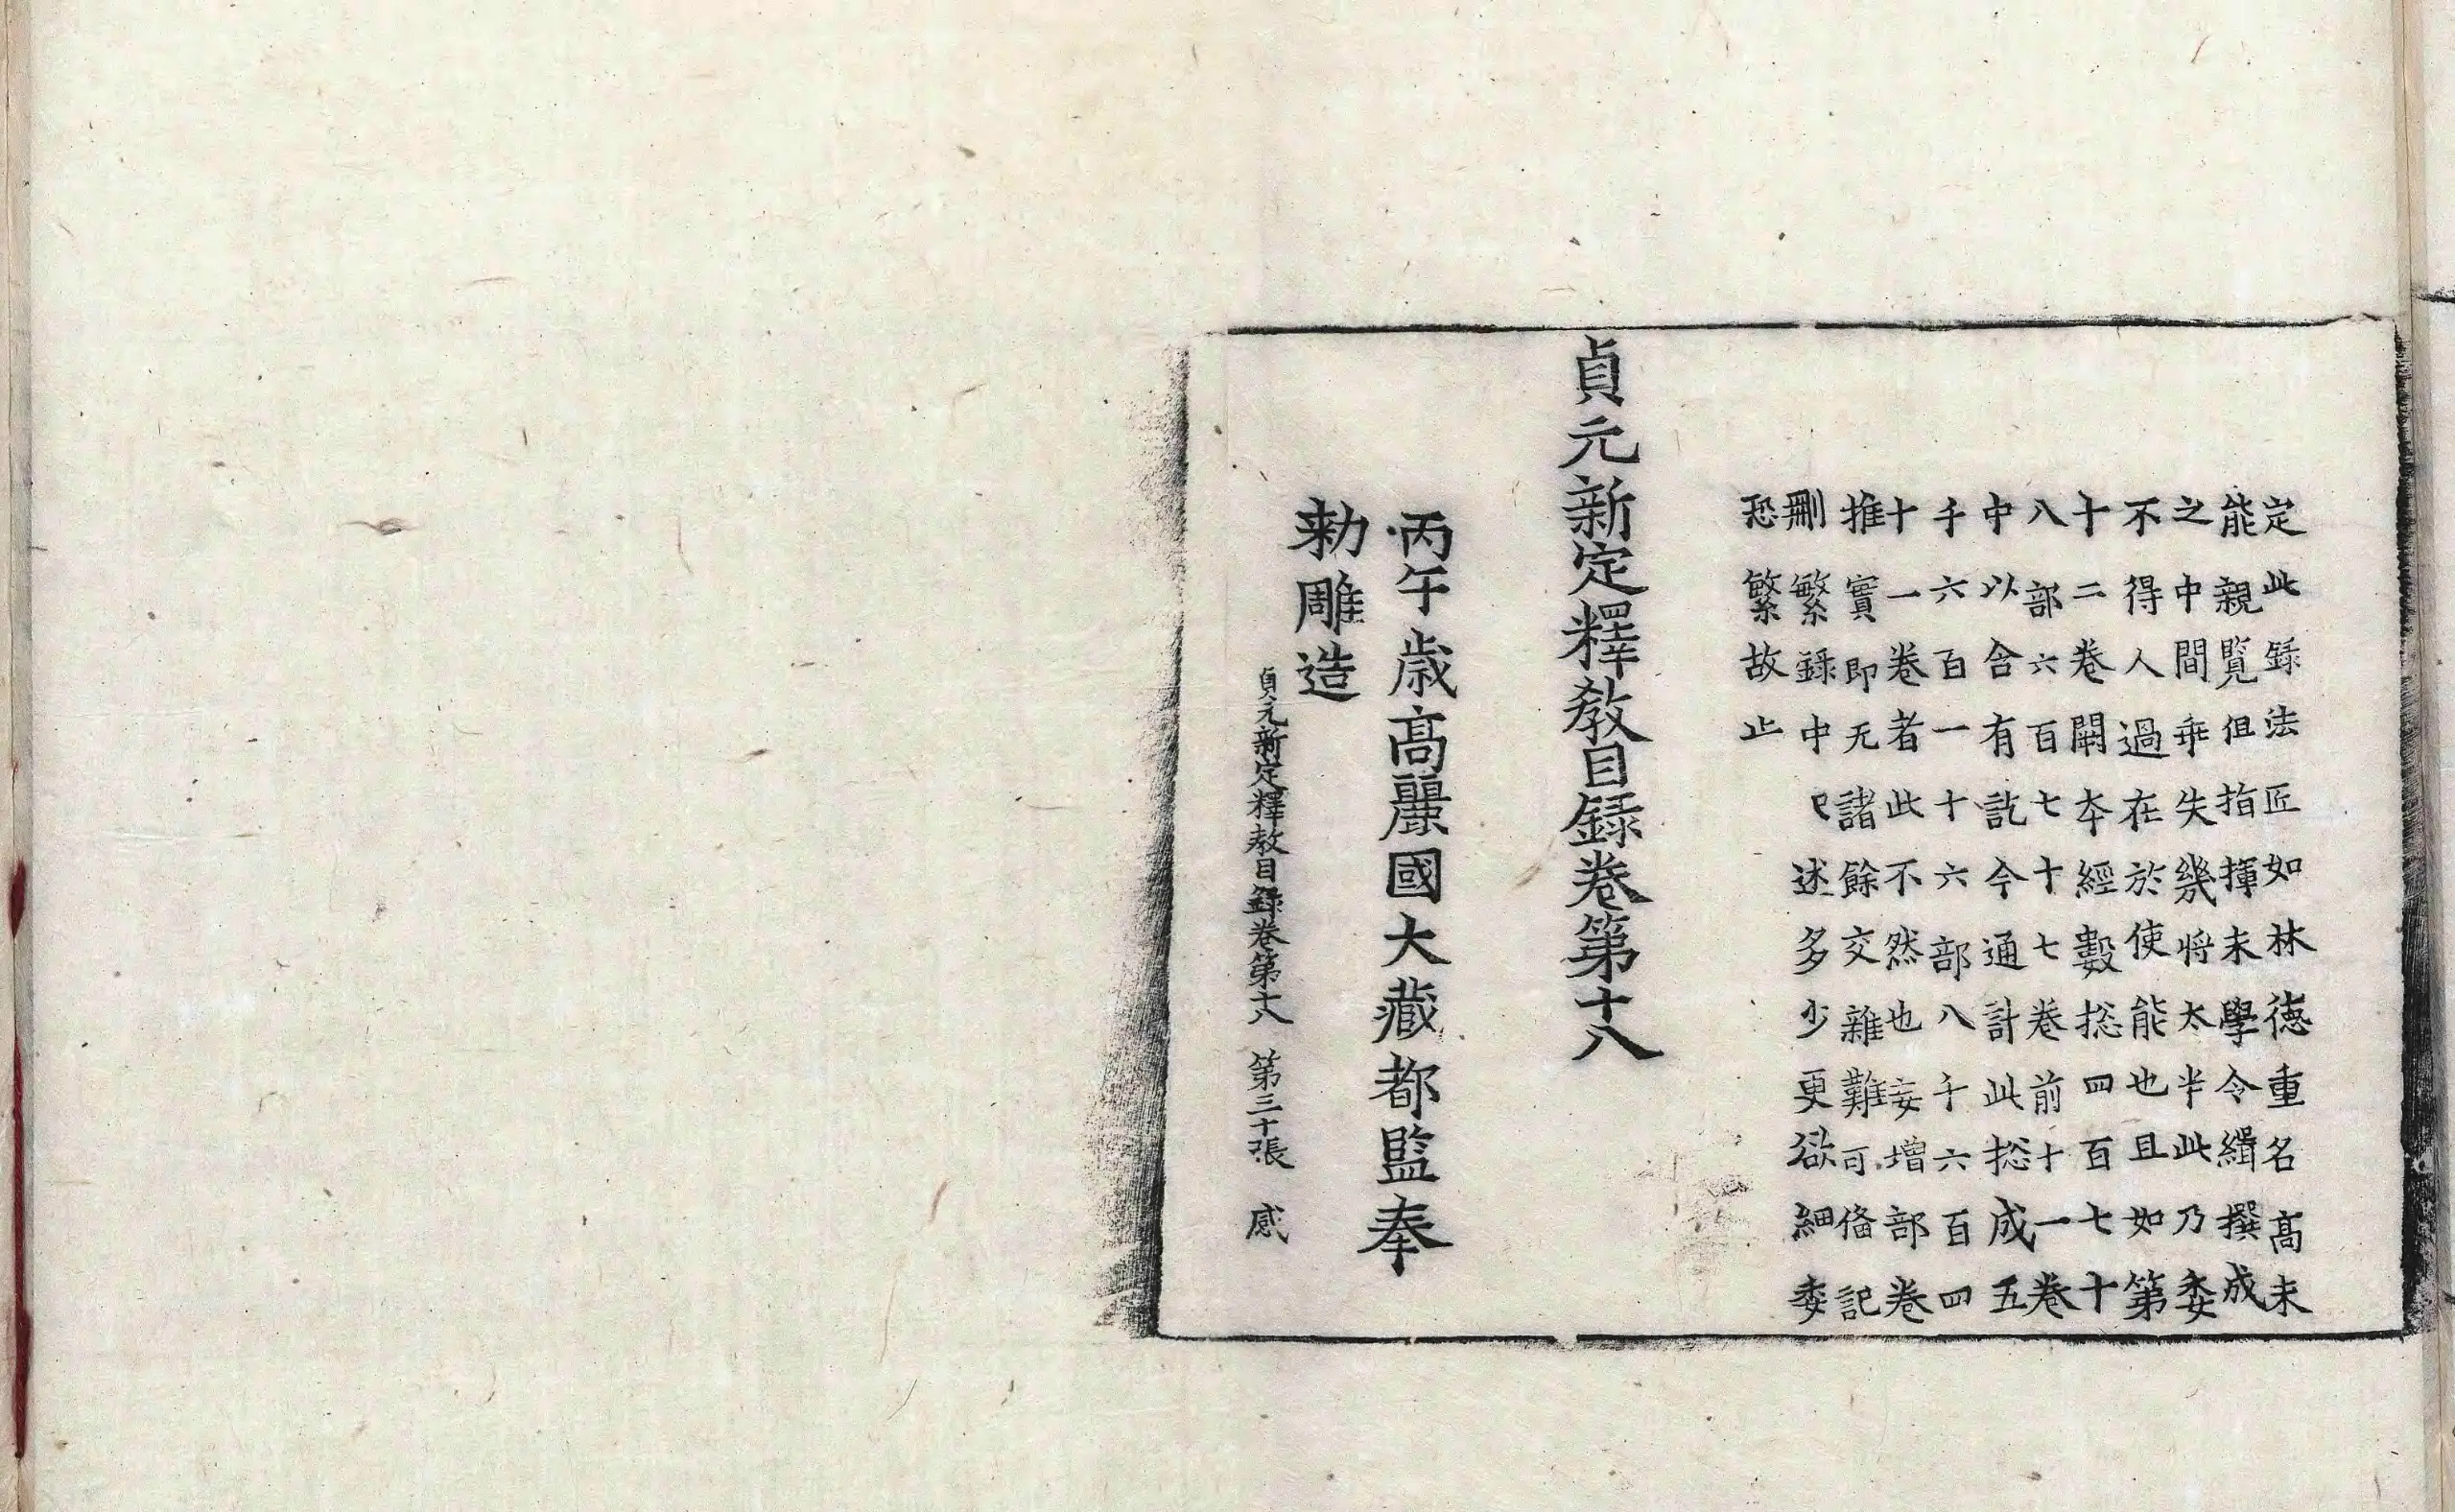 定此録法匠如林德重名髙未
能親覧但指揮未學令緝撰成
之中間乖失幾將太半此乃委
不得人過在於使能也且如第
十二卷開本經數捴四百七十
八部六百七十七卷前十一卷
中以含有訖今通計此捴成五
千六百一十六部八千六百四
十一卷者此不然也妄增部卷
推實即无諸餘交雜難可俻記
刪繁録中已述多少更欲細委
恐繁故止
貞元新定釋教目録卷第十八
丙午歳髙麗國大藏都監奉
勅雕造
貞元新定釋教目録卷第十八 第三十張 感